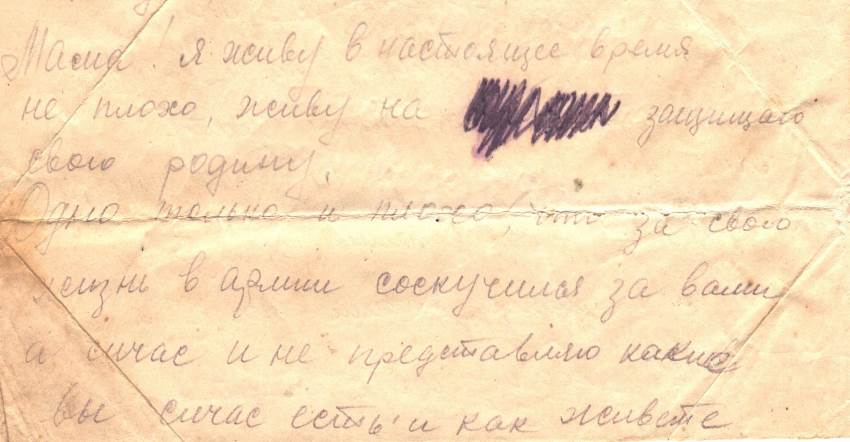 Мама! я живу в настоящее время
не плохо, живу на защищаю
свою родину.
Одно только и плохо, что за свою
жизнь в армии соскучился за вами
а сичас и не представляю какие
вы сичас есть и как живете